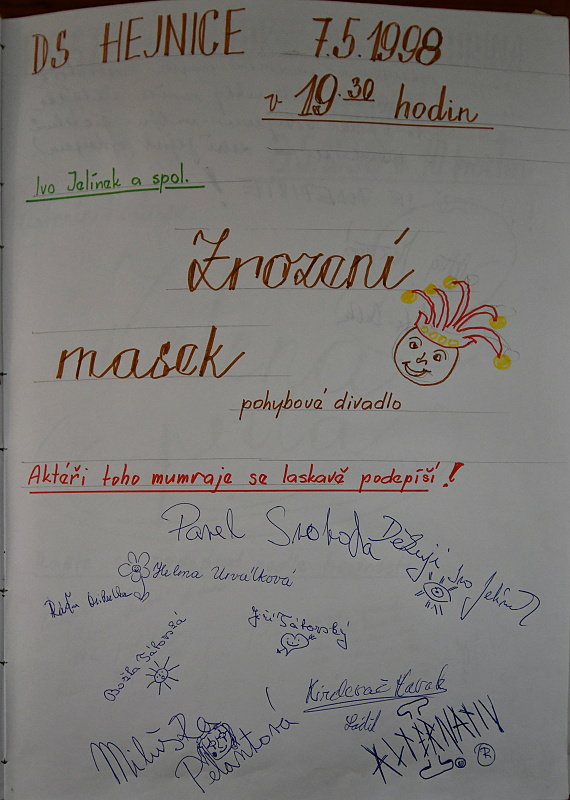 DS HEJNICE 7.5.1998
v 19.30 hodin
Ivo Jelínek a spol.
Zrození
masek
pohybové divadlo
Aktéři toho mumraje se laskavě podepíší!
Pavel Svoboda
Děkuji
Ivo Jelínek
Helena Urválková
Jiří Tátovský
Božka Tátovská
Miluška
Pelantová
Havak
ALTERNATIV
R